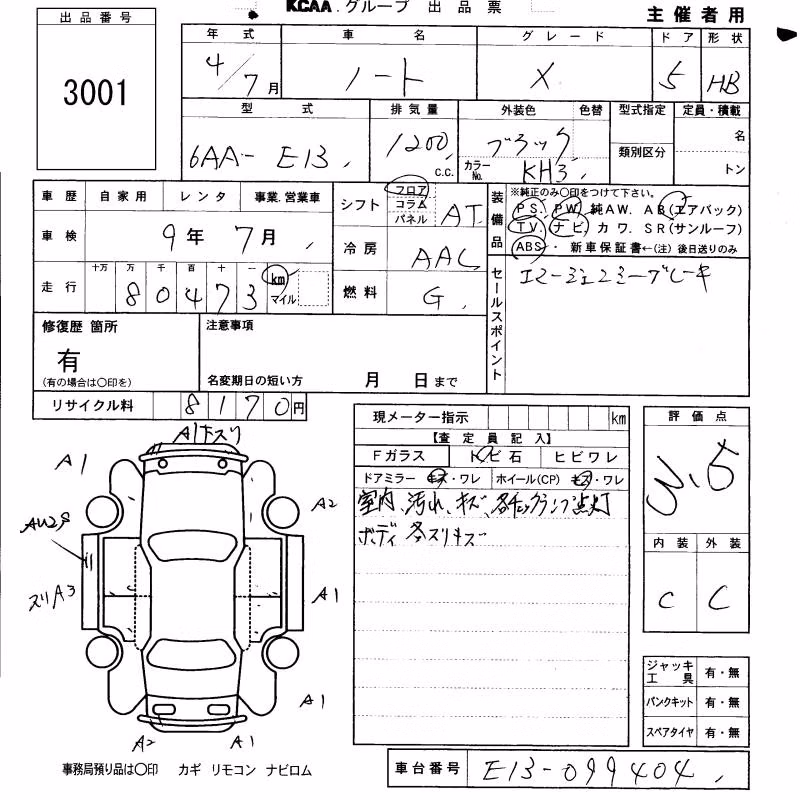 KCAA.グループ 出品票
主催者用
出品番号
3001
年式 車名 グレード ドア 形状
4/7月 ノート X 5 HB
型式 排気量 外装色 色替 型式指定 定員・積載
6AA-E13 1200 c.c. ブラック 類別区分 名
カラーNo. KH3 トン
車歴 自家用 レンタ 事業.営業車
車検 9年 7月
走行 十万 万 千 百 十
80473 km マイル
シフト フロア コラム パネル AT
冷房 AAC
燃料 G
装備品 ※純正のみ〇印をつけて下さい。
PS. PW. 純AW. AB(エアバック)
TV. ナビ カワ. SR(サンルーフ)
ABS・ 新車保証書←(注) 後日送りのみ
セールスポイント
エマージェンシーブレーキ
修復歴 箇所
有
(有の場合は〇印を)
注意事項
名変期日の短い方 月 日まで
リサイクル料 8170円
現メーター指示 km
【査定員記入】
Fガラス トビ石 ヒビワレ
ドアミラー キズ・ワレ ホイール(CP) キズ・ワレ
室内、汚れ、キズ、各チェックランプ点灯
ボディ各スリキズ
評価点
3.5
内装 外装
C C
ジャッキ工具 有・無
パンクキット 有・無
スペアタイヤ 有・無
A1下スリ
A1
A2
AU2S
スリA3
A1
A1
A2
A1
事務局預り品は〇印 カギ リモコン ナビロム
車台番号 E13-099404